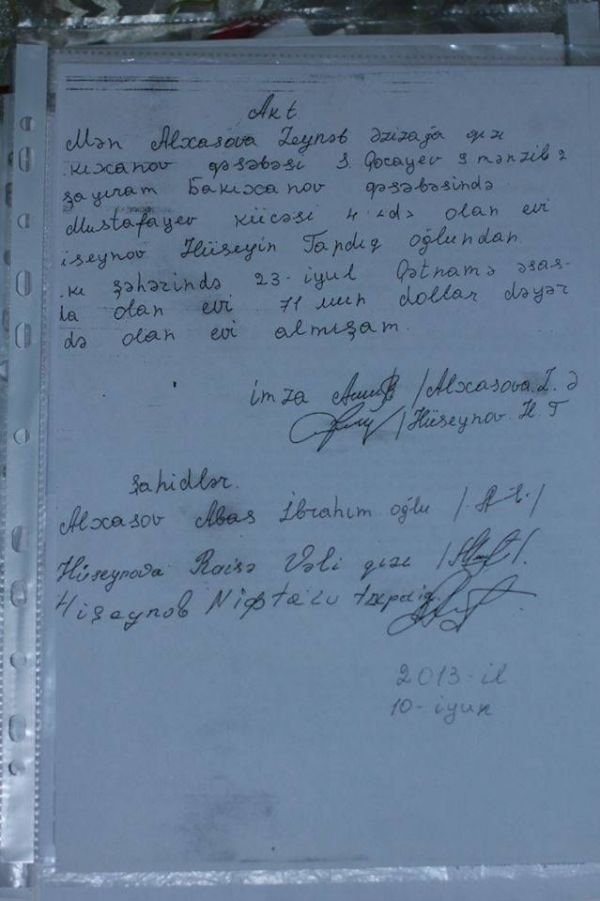 Akt
Mən Alxasova Zeynəb Əzizağa qızı
.kıxanov qəsəbəsi S. Qocayev 3 mənzil 2
şayıram Бakıxanov qəsəbəsində
Mustafayev küçəsi 4 .də olan evi
iseynov Hüseyin Tapdıq oğlundan
.kı şəhərində 23-iyul Qətnamə əsas-
la olan evi 71 мин dollar dəyər
də olan evi almışam.
imza /Alxasova. Z. Ə
/Hüseynov. H. T
Şahidlər.
Alxasov Abas İbrahim oğlu / /
Hüseynova Raisə Vəli qızı / /.
Hişeynov Niftalu
2013-il
10-iyun